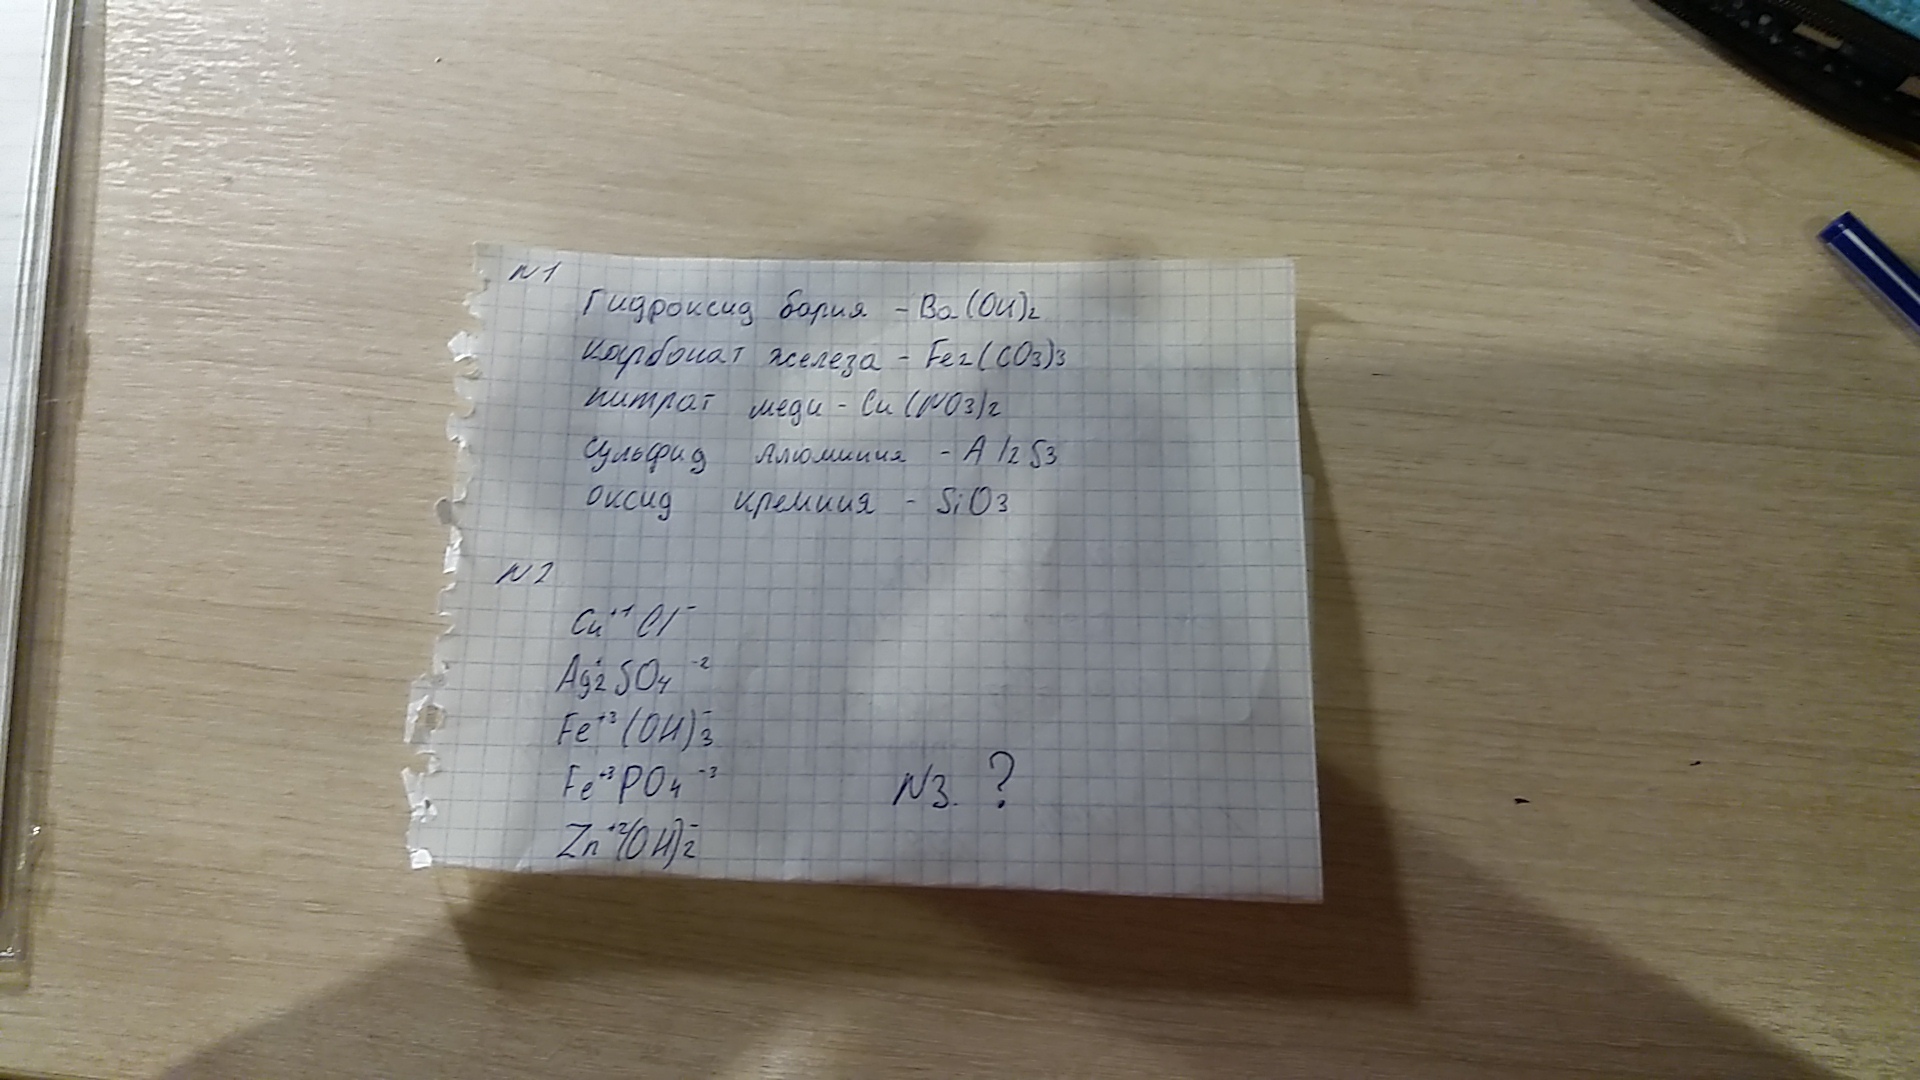 N1
Гидроксид бария - Ba(OH)2
Карбонат железа - Fe2(CO3)3
Нитрат меди - Cu(NO3)2
Сульфид алюминия - Al2S3
Оксид кремния - SiO3
N2
Cu⁺¹Cl⁻
Ag⁺2SO4⁻²
Fe⁺³(OH)⁻3
Fe⁺³PO4⁻³
N3. ?
Zn⁺²(OH)⁻2